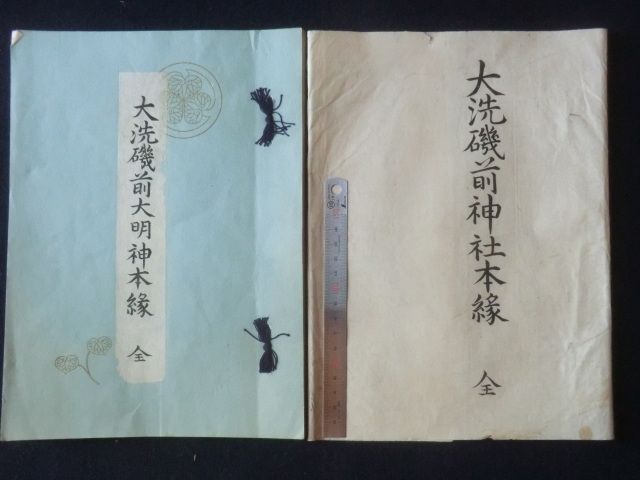 大洗磯前大明神本縁
全
大洗磯前神社本縁
全